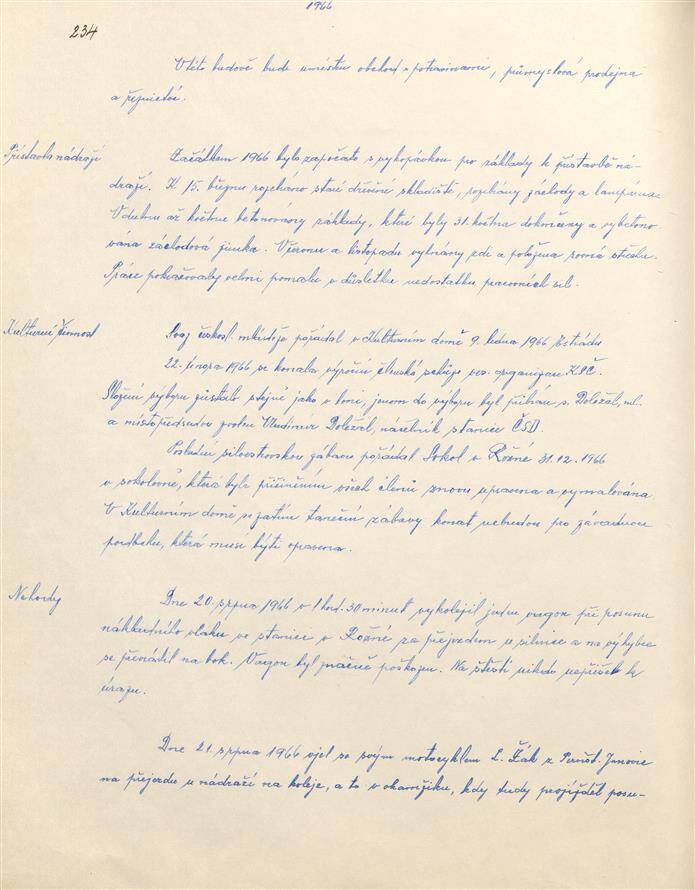 1966
234
V této budově bude umístěn obchod s potravinami, průmyslová prodejna
a řeznictví.
Přístavba nádraží
Začátkem 1966 bylo započato s vykopávkou pro základy k přístavbě ná-
draží. K 15. březnu rozebráno staré dřevěné skladiště, rozebrány záchody a lampárna.
V dubnu až květnu betonovány základy, které byly 31. května dokončeny a vybetono
vána záchodová jímka. V červnu a listopadu vyhnány zdi a položena rovná střecha.
Práce pokračovaly velmi pomalu v důsledku nedostatku pracovních sil.
Kulturní činnost
Svaz českosl. mládeže pořádal v Kulturním domě 9. ledna 1966 Estrádu
22. února 1966 se konala výroční členská schůze ves. organizace KSČ.
Složení výboru zůstalo stejné jako v loni, jenom do výboru byl přibrán s. Doležal, ml.
a místopředsedou zvolen Vladimír Doležal, náčelník stanice ČSD.
Poslední silvestrovskou zábavu pořádal Sokol v Rožné 31.12.1966
v sokolovně, která byla přičiněním všech členů znovu upravena a vymalována
V Kulturním domě se zatím taneční zábavy konat nebudou pro závadnou
podlahu, která musí býti opravena.
Nehody
Dne 20. srpna 1966 v 1 hod. 30 minut vykolejil jeden vagon při posunu
nákladního vlaku ve stanici v Rožné za přejezdem u silnice a na výhybce
se převrátil na bok. Vagon byl značně poškozen. Na štěstí nikdo nepřišel k
úrazu.
Dne 21. srpna 1966 vjel se svým motocyklem L. Žák z Pernšt. Janovic
na přejezdu u nádraží na koleje, a to v okamžiku, kdy tudy projížděl posu-